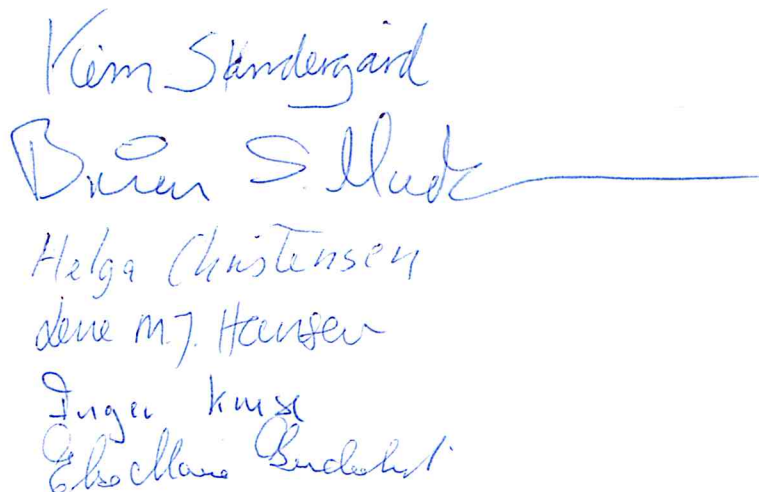 Kim Søndergård
Brian S. Munk
Helga Christensen
Lene M.J. Hansen
Inger Kruse
Else Marie